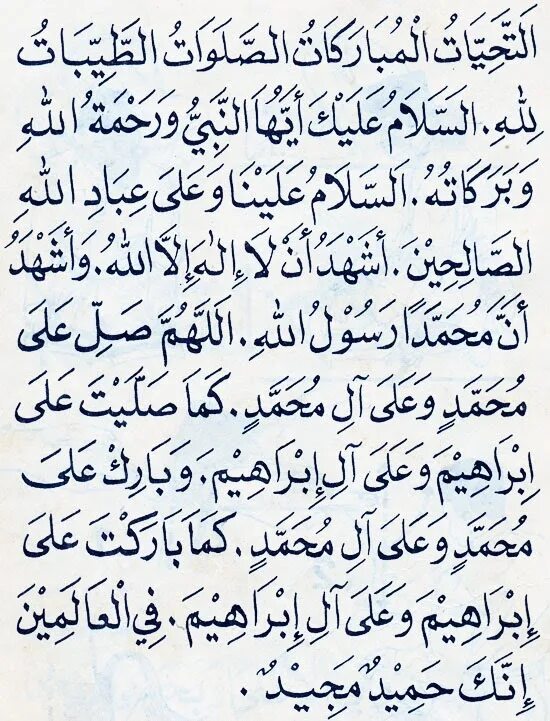 اَلتَّحِيَّاتُ الْمُبَارَكَاتُ الصَّلَوَاتُ الطَّيِّبَاتُ
لِلّٰهِ. السَّلَامُ عَلَيْكَ أَيُّهَا النَّبِيُّ وَرَحْمَةُ اللّٰهِ
وَبَرَكَاتُهُ. اَلسَّلَامُ عَلَيْنَا وَعَلَى عِبَادِ اللّٰهِ
الصَّالِحِيْنَ. أَشْهَدُ أَنْ لَا إِلٰهَ إِلَّا اللّٰهُ. وَأَشْهَدُ
أَنَّ مُحَمَّدًا رَسُوْلُ اللّٰهِ. اَللّٰهُمَّ صَلِّ عَلَى
مُحَمَّدٍ وَعَلَى آلِ مُحَمَّدٍ. كَمَا صَلَّيْتَ عَلَى
إِبْرَاهِيْمَ وَعَلَى آلِ إِبْرَاهِيْمَ. وَبَارِكْ عَلَى
مُحَمَّدٍ وَعَلَى آلِ مُحَمَّدٍ. كَمَا بَارَكْتَ عَلَى
إِبْرَاهِيْمَ وَعَلَى آلِ إِبْرَاهِيْمَ. فِي الْعَالَمِيْنَ
إِنَّكَ حَمِيْدٌ مَجِيْدٌ.